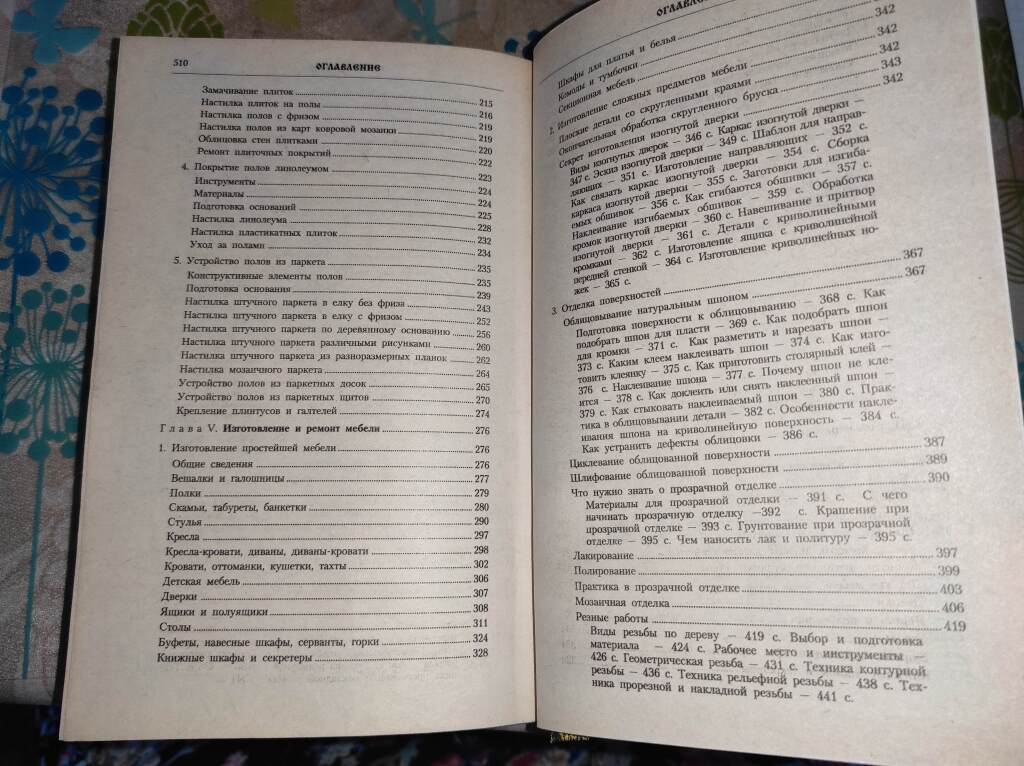 510 ОГЛАВЛЕНИЕ
Замачивание плиток 215
Настилка плиток на полы 216
Настилка полов с фризом 219
Настилка полов из карт ковровой мозаики 219
Облицовка стен плитками 220
Ремонт плиточных покрытий 222
4. Покрытие полов линолеумом 223
Инструменты 224
Материалы 224
Подготовка оснований 225
Настилка линолеума 228
Настилка пластикатных плиток 232
Уход за полами 234
5. Устройство полов из паркета 235
Конструктивные элементы полов 235
Подготовка основания 239
Настилка штучного паркета в елку без фриза 243
Настилка штучного паркета в елку с фризом 252
Настилка штучного паркета по деревянному основанию 256
Настилка штучного паркета различными рисунками 260
Настилка штучного паркета из разноразмерных планок 262
Настилка мозаичного паркета 264
Устройство полов из паркетных досок 265
Устройство полов из паркетных щитов 270
Крепление плинтусов и галтелей 274
Глава V. Изготовление и ремонт мебели 276
1. Изготовление простейшей мебели 276
Общие сведения 276
Вешалки и галошницы 277
Полки 279
Скамьи, табуреты, банкетки 280
Стулья 290
Кресла 297
Кресла-кровати, диваны, диваны-кровати 298
Кровати, оттоманки, кушетки, тахты 302
Детская мебель 306
Дверки 307
Ящики и полуящики 308
Столы 311
Буфеты, навесные шкафы, серванты, горки 324
Книжные шкафы и секретеры 328
ОГЛАВЛЕН
Шкафы для платья и белья 342
Комоды и тумбочки 342
Секционная мебель 342
2. Изготовление сложных предметов мебели 343
Плоские детали со скругленными краями 342
Окончательная обработка скругленного бруска
Секрет изготовления изогнутой дверки
Виды изогнутых дверок — 346 с. Каркас изогнутой дверки —
347 с. Эскиз изогнутой дверки — 349 с. Шаблон для направ-
ляющих — 351 с. Изготовление направляющих — 352 с.
Как связать каркас изогнутой дверки — 354 с. Сборка
каркаса изогнутой дверки — 355 с. Заготовки для изгиба-
емых обшивок — 356 с. Как сгибаются обшивки — 357 с.
Наклеивание изгибаемых обшивок — 359 с. Обработка
кромок изогнутой дверки — 360 с. Навешивание и притвор
изогнутой дверки — 361 с. Детали с криволинейными
кромками — 362 с. Изготовление ящика с криволинейной
передней стенкой — 364 с. Изготовление криволинейных но-
жек — 365 с.
3. Отделка поверхностей 367
Облицовывание натуральным шпоном 367
Подготовка поверхности к облицовыванию — 368 с. Как
подобрать шпон для пласти — 369 с. Как подобрать шпон
для кромки — 371 с. Как разметить и нарезать шпон —
373 с. Каким клеем наклеивать шпон — 374 с. Как изго-
товить клеянку — 375 с. Как приготовить столярный клей —
376 с. Наклеивание шпона — 377 с. Почему шпон не кле-
ится — 378 с. Как доклеить или снять наклеенный шпон —
379 с. Как стыковать наклеиваемый шпон — 380 с. Прак-
тика в облицовывании детали — 382 с. Особенности накле-
ивания шпона на криволинейную поверхность — 384 с.
Как устранить дефекты облицовки — 386 с.
Циклевание облицованной поверхности 387
Шлифование облицованной поверхности 389
Что нужно знать о прозрачной отделке 390
Материалы для прозрачной отделки — 391 с. С чего
начинать прозрачную отделку —392 с. Крашение при
прозрачной отделке — 393 с. Грунтование при прозрачной
отделке — 395 с. Чем наносить лак и политуру — 395 с.
Лакирование 397
Полирование 399
Практика в прозрачной отделке 403
Мозаичная отделка 406
Резные работы 419
Виды резьбы по дереву — 419 с. Выбор и подготовка
материала — 424 с. Рабочее место и инструменты —
426 с. Геометрическая резьба — 431 с. Техника контурной
резьбы — 436 с. Техника рельефной резьбы — 438 с. Тех-
ника прорезной и накладной резьбы — 441 с.